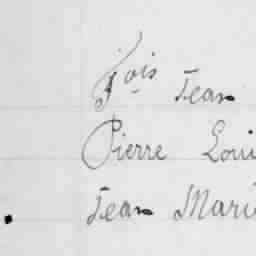 Fois Jean
Pierre Loui
Jean Mari